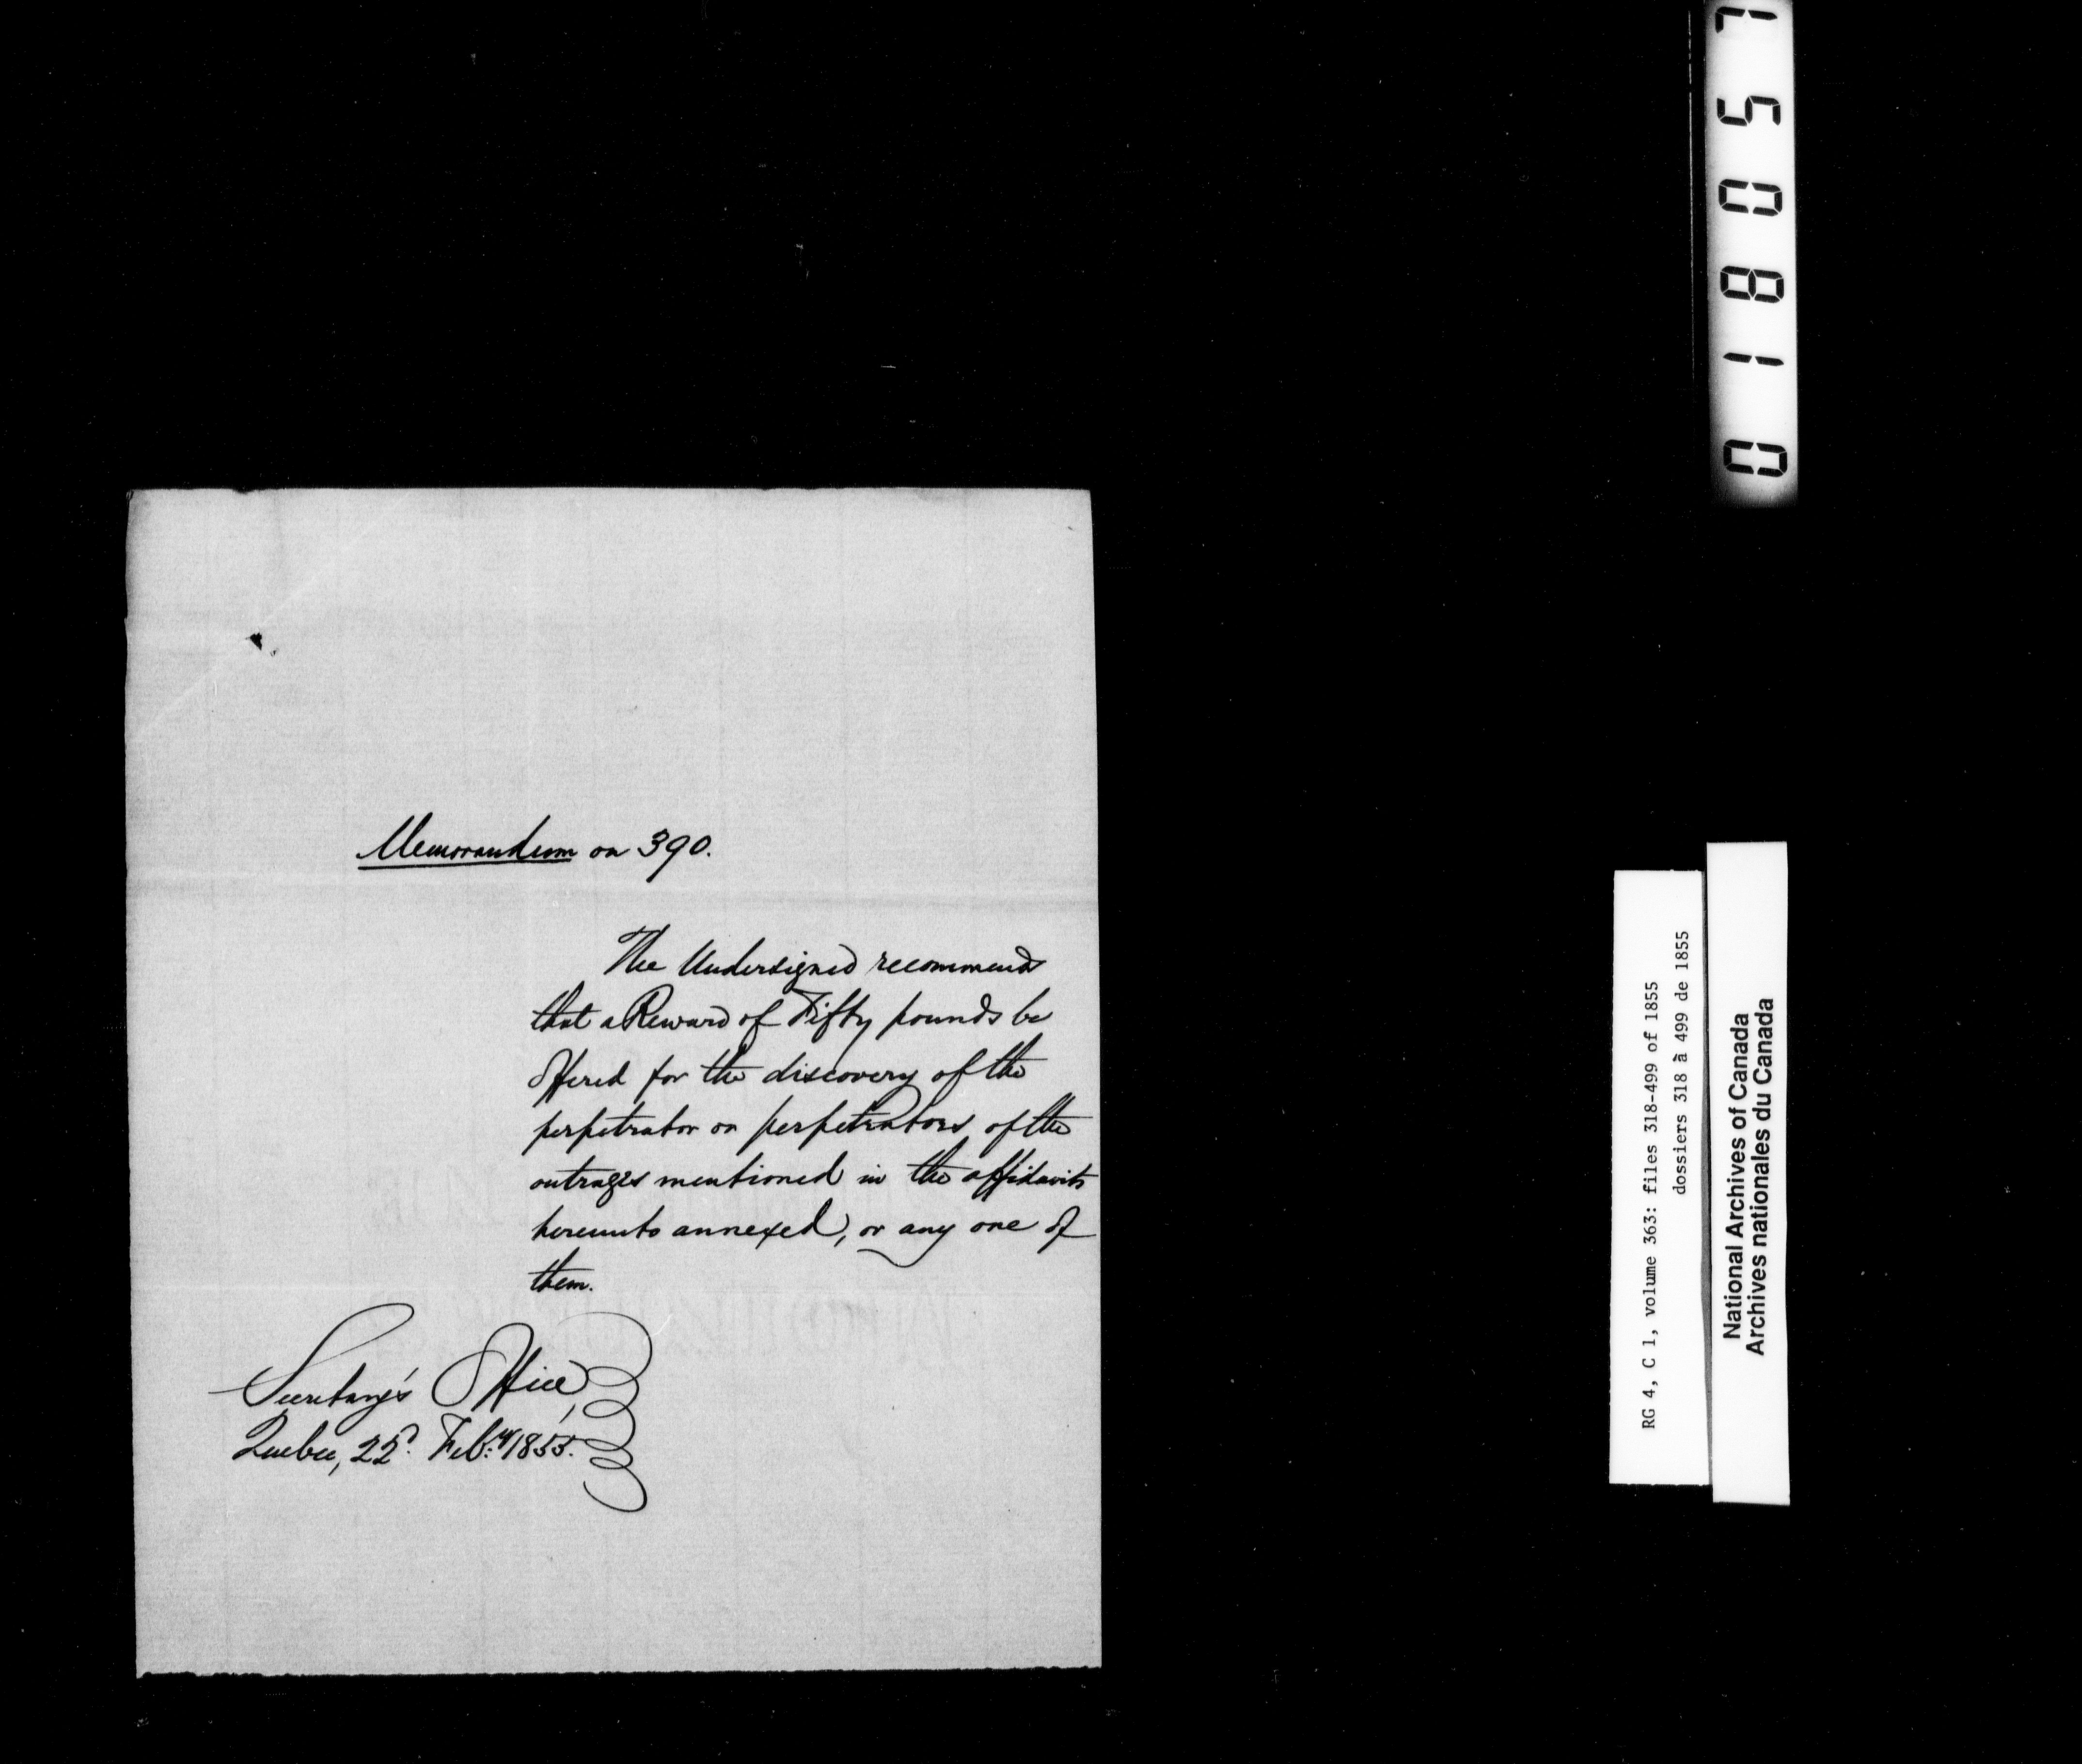 Memorandum on 390.
The Undersigned recommends
that a Reward of Fifty pounds be
offered for the discovery of the
perpetrator or perpetrators of the
outrages mentioned in the affidavits
hereunto annexed, or any one of
them.
Secretary's Office,
Quebec, 22d. Feby. 1855.
018057
RG 4, C 1, volume 363: files 318-499 of 1855
dossiers 318 à 499 de 1855
National Archives of Canada
Archives nationales du Canada